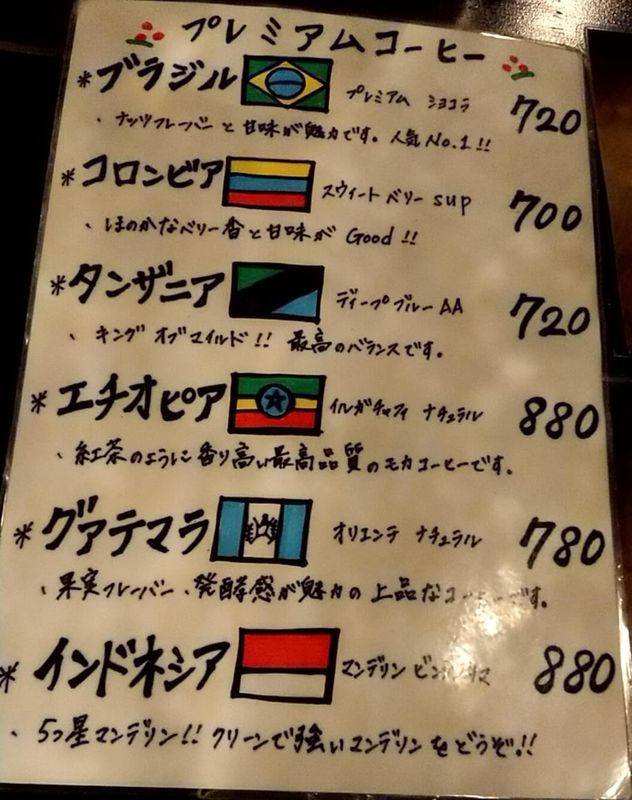 プレミアムコーヒー
*ブラジル プレミアム ショコラ 720
、ナッツフレーバーと甘味が魅力です。人気No.1!!
*コロンビア スウィートベリー sup 700
、ほのかなベリー香と甘味が Good!!
*タンザニア ディープブルーAA 720
、キング オブ マイルド!! 最高のバランスです。
*エチオピア イルガチャフィ ナチュラル 880
、紅茶のように香り高い最高品質のモカコーヒーです。
*グァテマラ オリエンテ ナチュラル 780
、果実フレーバー、発酵感が魅力の 上品なコーヒーです。
*インドネシア マンデリン 880
、5つ星マンデリン!! クリーンで強いマンデリンをどうぞ!!